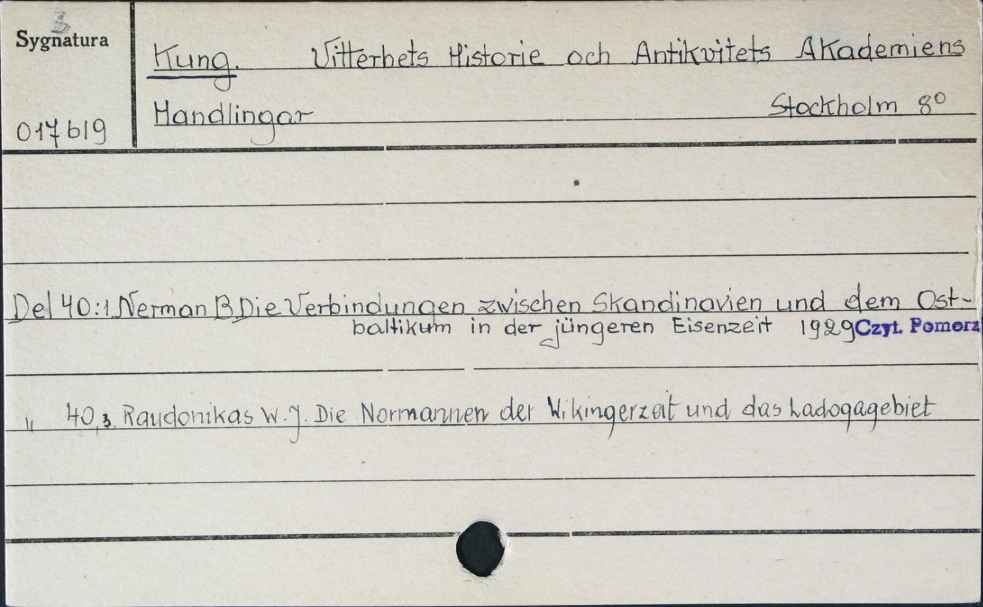 Sygnatura
Kung. Vitterhets Historie och Antikvitets Akademiens
Handlingar Stockholm 8°
017619
Del 40:1 Nerman B Die Verbindungen zwischen Skandinavien und dem Ost-
baltikum in der jüngeren Eisenzeit 1929 Czyt. Pomorz
" 40,3. Raudonikas W.J. Die Normannen der Wikingerzeit und das Ladogagebiet